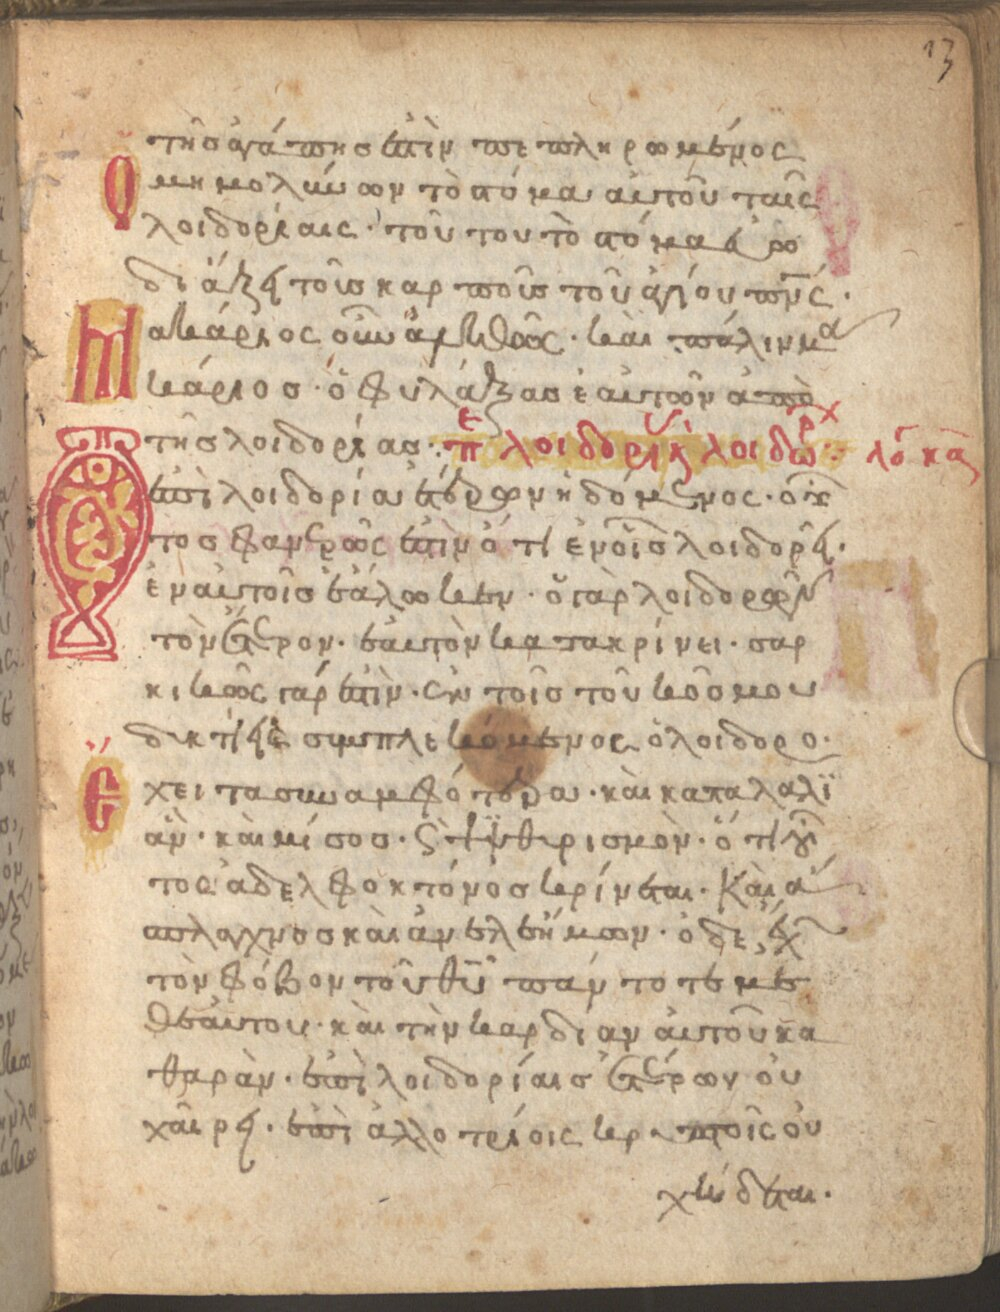 13
τῆς ἀγάπης ἐστὶν πεπληρωμένος
Ὁ μὴ μολύνων τὸ στόμα αὐτοῦ ταῖς
λοιδορίαις· τούτου τὸ στόμα εὐω
διάζει τοῖς καρποῖς τοῦ ἁγίου πν̅ς·
Μακάριος οὖν ἀληθῶς· καὶ πάλιν μα
κάριος· ὁ φυλάξας ἑαυτὸν ἀπὸ
τῆς λοιδορίας· πε λοιδορι λοιδω λο κα
Ὁ ἐπὶ λοιδορία ἑτέρων ἡδόμενος· οὗ
τος φανερῶς ἐστὶν ὅτι ἐν οἷς λοιδορεῖ·
ἐν αὐτοῖς ἑάλωκεν· ὁ γὰρ λοιδορῶν
τὸν ἕτερον· ἑαυτὸν κατακρίνει· σαρ
κικὸς γάρ ἐστιν· ἐν τοῖς τοῦ κόσμου
δικτύοις συμπλεκόμενος ὁ λοίδορος·
Ἔχει τὰ συναμφότερα· καὶ καταλαλι
ὰν· καὶ μίσος· ὅτι οὗ
τος ἀδελφοκτόνος κρίνεται· Καὶ ἄ
σπλαγχνος καὶ ἀνελεήμων· ὁ δὲ ἔχ
τὸν φόβον τοῦ θυ̅ πάντοτε με
θ' ἑαυτοῦ· καὶ τὴν καρδίαν αὐτοῦ κα
θαρὰν· ἐπὶ λοιδορίαις ἑτέρων οὐ
χαίρει· ἐπὶ ἀλλοτρίοις οὐ
χ ἥδεται·